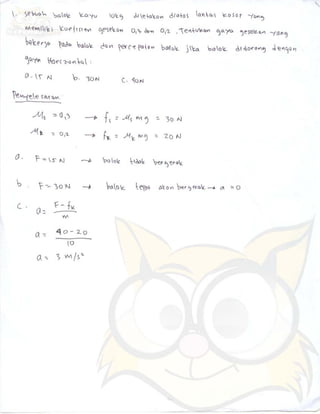 1. sebuah balok kayu 10kg diletakan diatas lantai kasar yang
memiliki koefisien gesekan 0,3 dan 0,2. Tentukan gaya gesekan yang
bekerja pada balok dan percepatan balok jika balok didorong dengan
gaya Horizontal :
a. 15 N b. 30N C. 40N
Penyelesaian.
μs = 0,3 → fs = μs m g = 30 N
μk = 0,2 → fk = μk m g = 20 N
a. F = 15 N → balok tidak bergerak
b. F = 30 N → balok tepat akan bergerak → a = 0
C. a = F - fk / m
a = 40 - 20 / 10
a = 3 m/s²